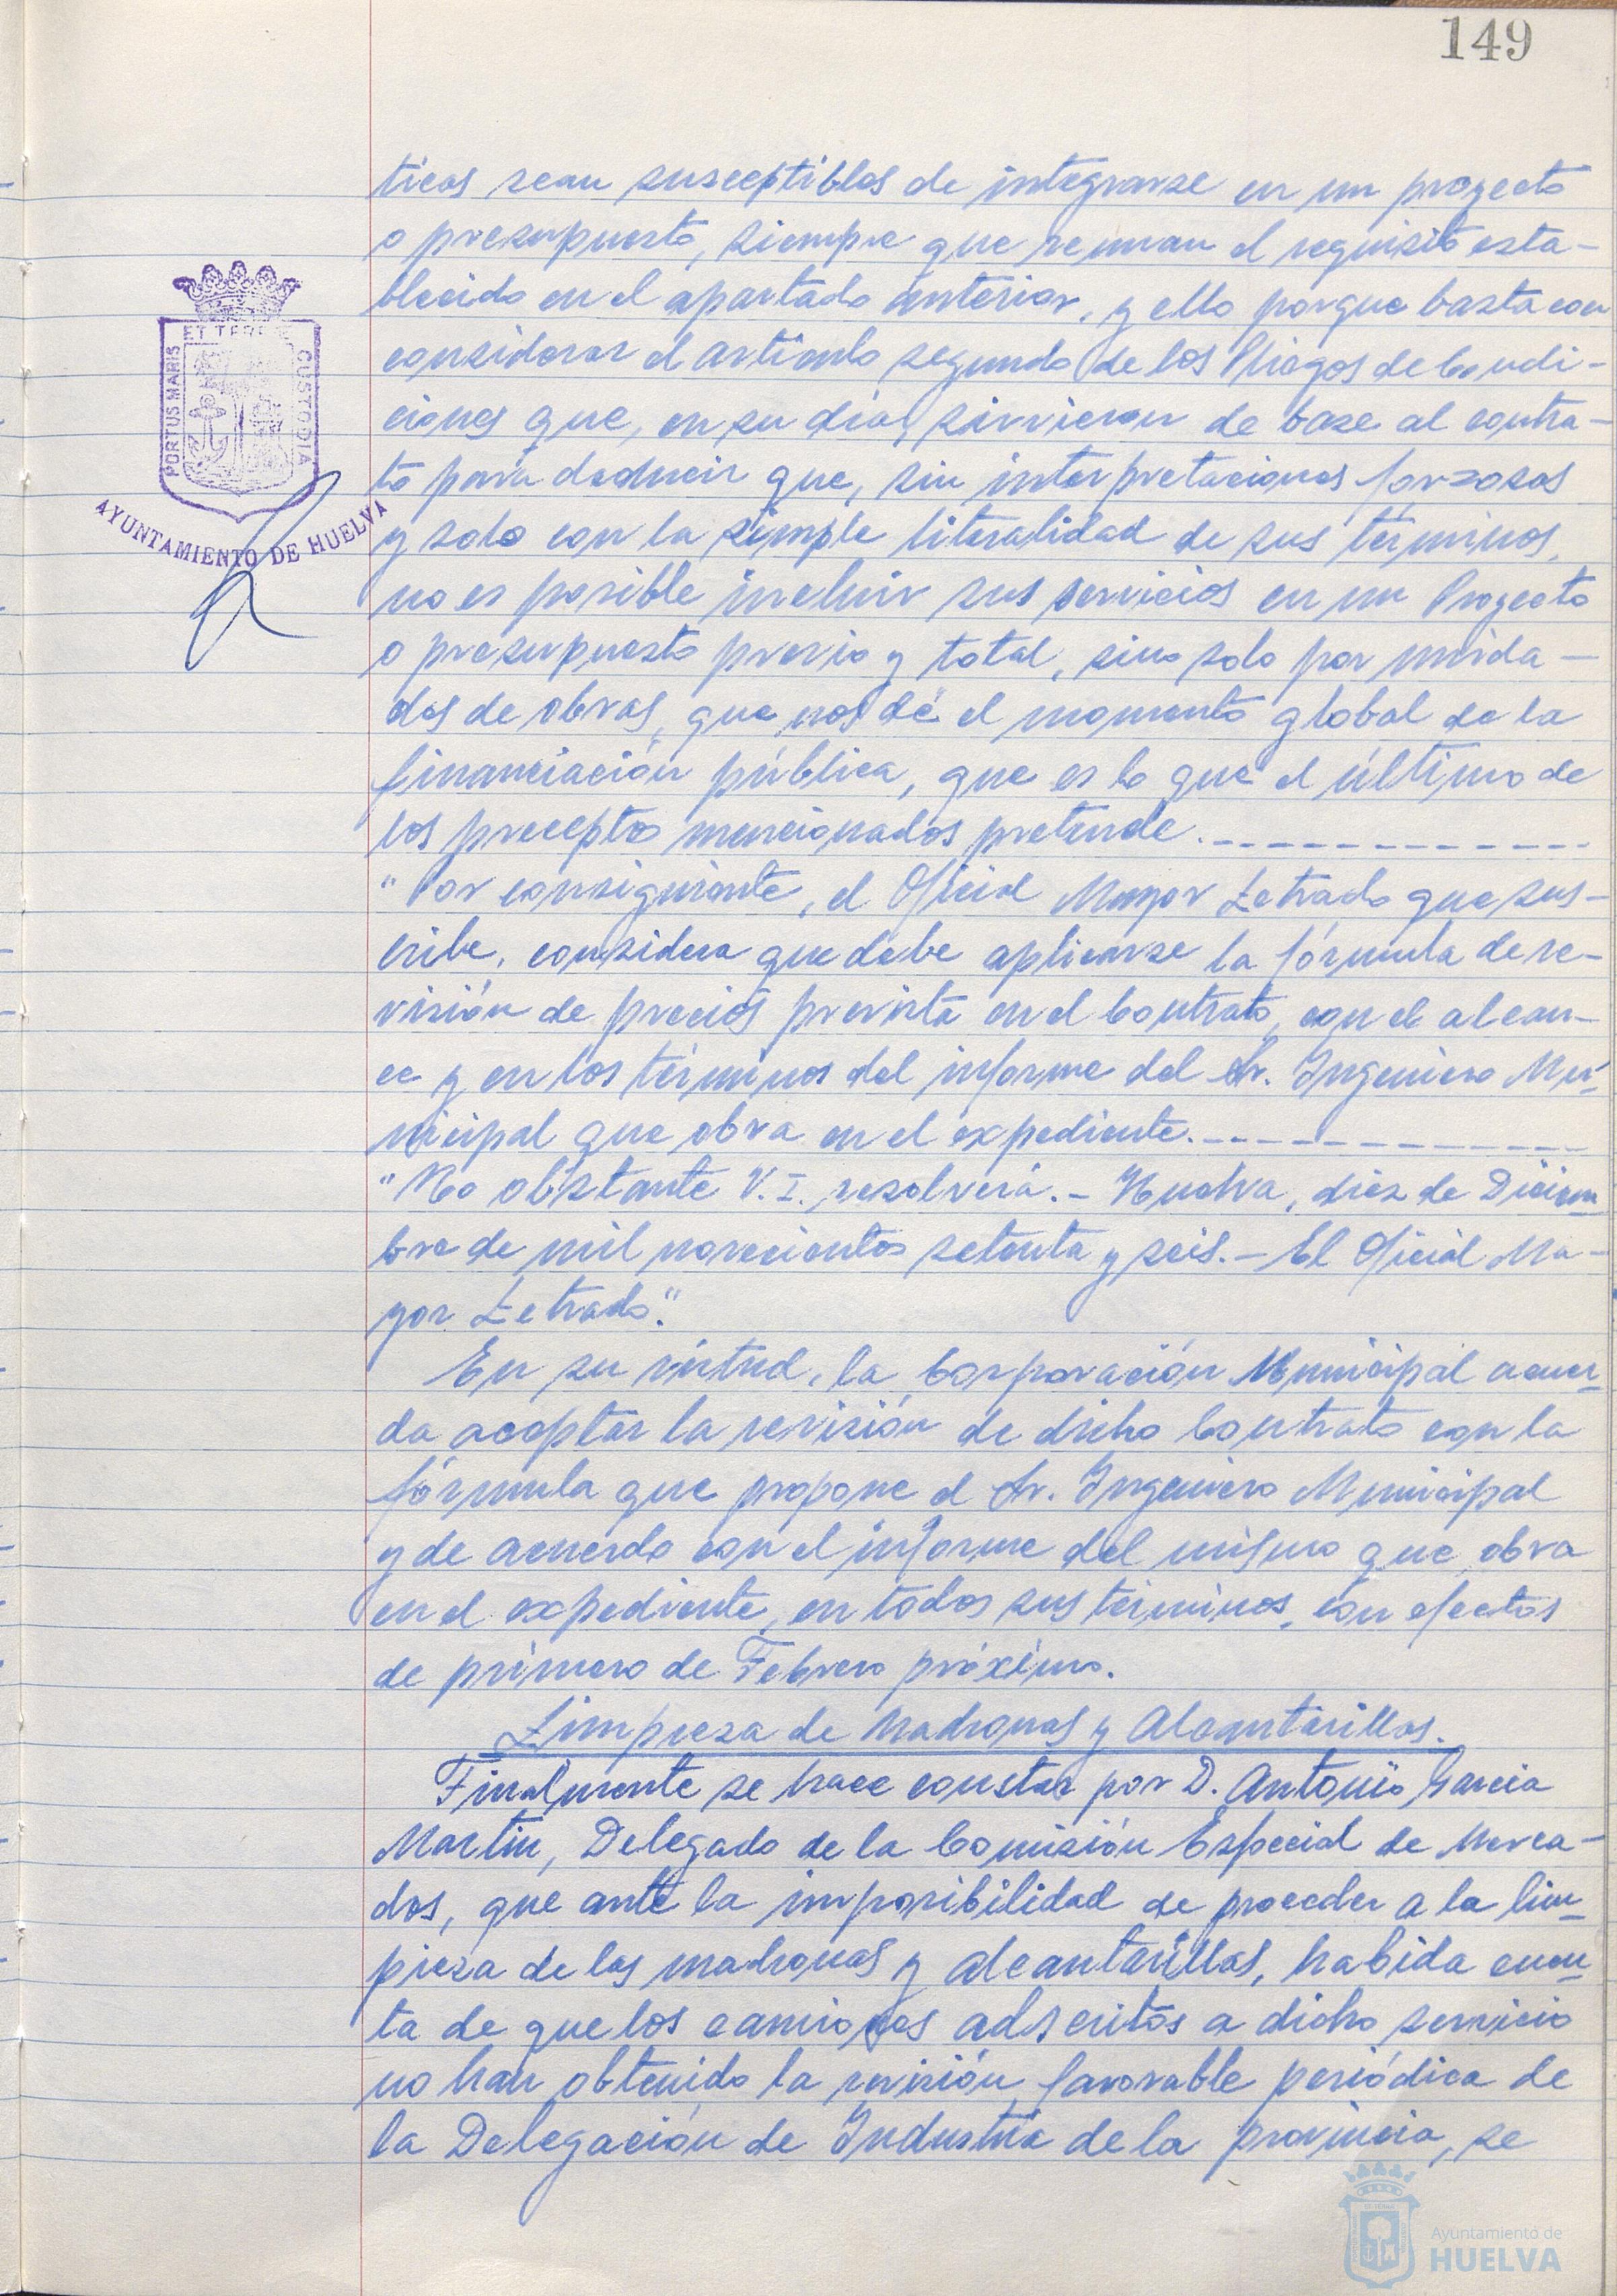 149
ticas sean susceptibles de integrarse en un proyecto
o presupuesto, siempre que reunan el requisito esta-
blecido en el apartado anterior, y ello porque basta con
considerar el artículo segundo de los Pliegos de Condi-
ciones que, en su día, sirvieron de base al contra-
to para deducir que, sin interpretaciones forzosas
y solo con la simple literalidad de sus términos,
no es posible incluir sus servicios en un Proyecto
o presupuesto previo y total, sino solo por unida-
des de obras, que nos dé el momento global de la
financiación pública, que es lo que el último de
los preceptos mencionados pretende.
"Por consiguiente, el Oficial Mayor Letrado que sus-
cribe, considera que debe aplicarse la fórmula de re-
visión de precios prevista en el Contrato, con el alcan-
ce y en los términos del informe del Sr. Ingeniero Mu-
nicipal que obra en el expediente.
"No obstante V.I. resolverá.- Huelva, diez de Diciem-
bre de mil novecientos setenta y seis.- El Oficial Ma-
yor Letrado".
En su virtud, la Corporación Municipal acuer-
da aceptar la revisión de dicho Contrato con la
fórmula que propone el Sr. Ingeniero Municipal
y de acuerdo con el informe del mismo que obra
en el expediente, en todos sus términos, con efectos
de primero de Febrero próximo.
Limpieza de Madronas y Alcantarillas.
Finalmente se hace constar por D. Antonio García
Martín, Delegado de la Comisión Especial de Merca-
dos, que ante la imposibilidad de proceder a la lim-
pieza de las madronas y alcantarillas, habida cuen-
ta de que los camiones adscritos a dicho servicio
no han obtenido la revisión favorable periódica de
la Delegación de Industria de la provincia, se
PORTUS MARIS ET TERRE CUSTODIA
AYUNTAMIENTO DE HUELVA
Ayuntamiento de
HUELVA